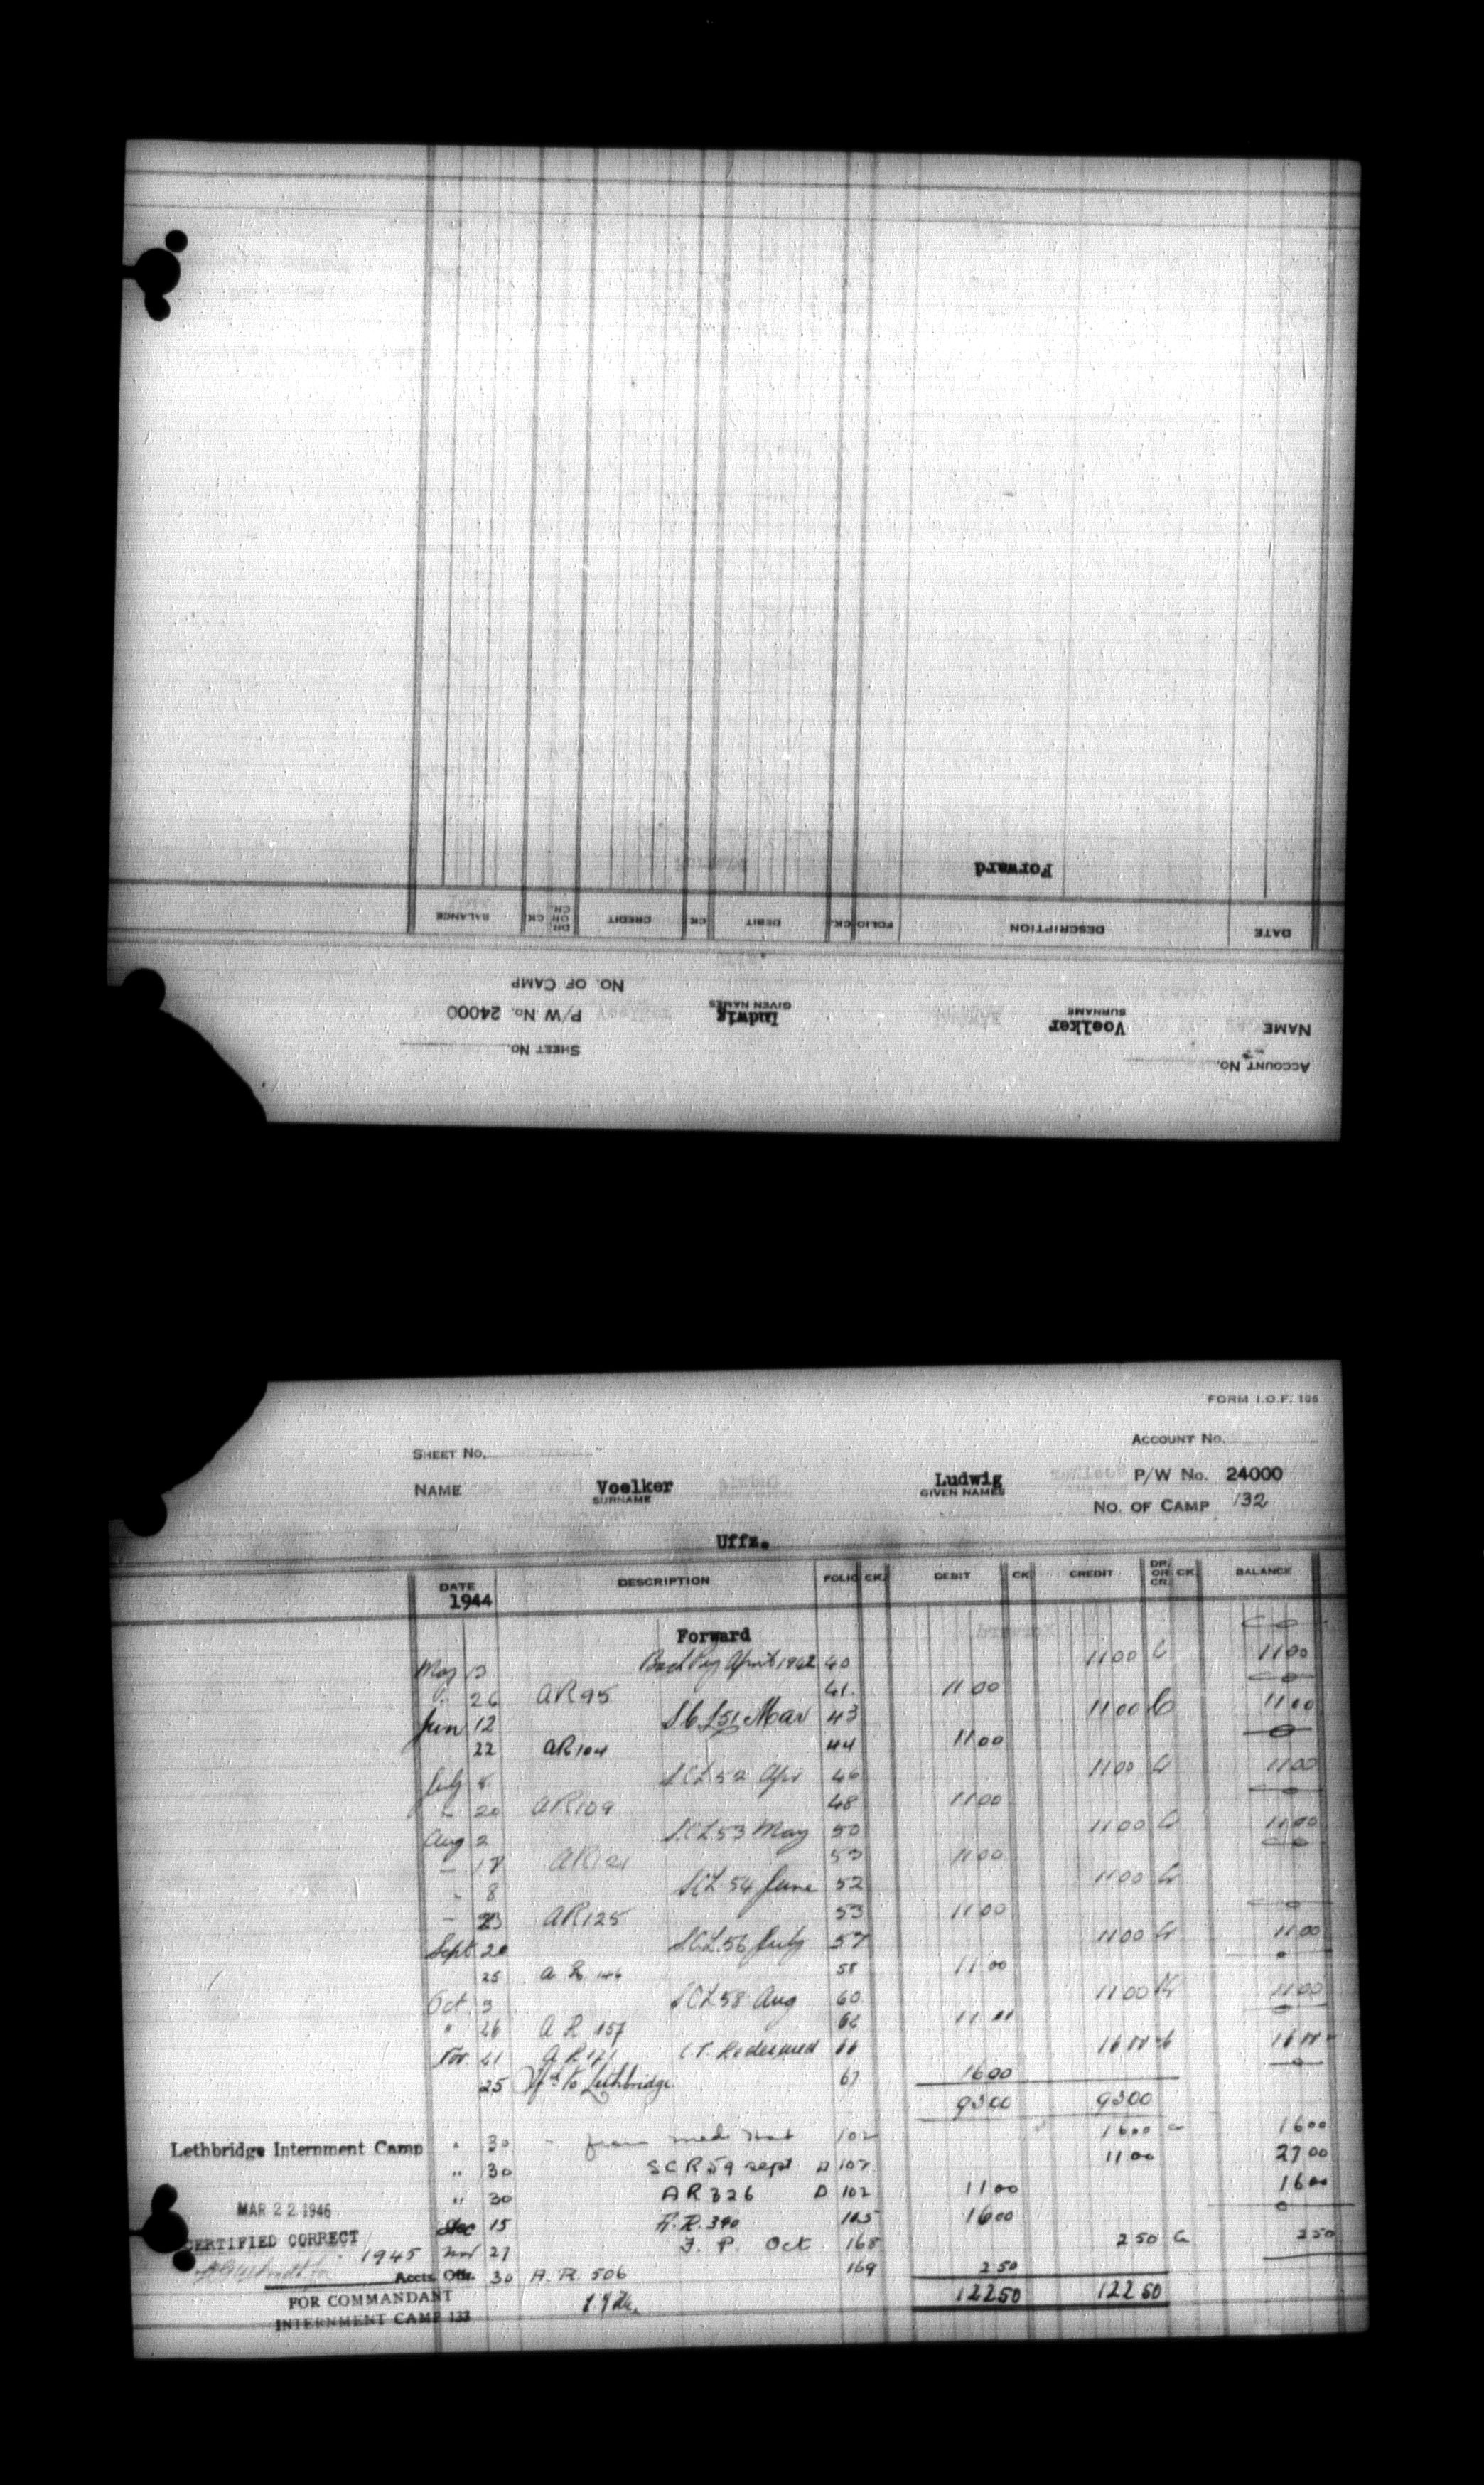 Forward
DATE DESCRIPTION FOLIO CK. DEBIT CK CREDIT DR. OR CR. CK BALANCE
NO. OF CAMP
NAME Voelker Ludwig P/W No. 24000
SURNAME GIVEN NAMES
ACCOUNT No. SHEET No.
FORM I.O.F. 106
SHEET No. ACCOUNT No.
NAME Voelker Ludwig P/W No. 24000
SURNAME GIVEN NAMES
NO. OF CAMP 132
Uffz.
DATE DESCRIPTION FOLIO CK. DEBIT CK CREDIT DR. OR CR. CK BALANCE
1944
Forward
May 13 Pay April 1942 40 11 00 11 00
26 AR 95 41 11 00
Jun 12 51 Mar 43 11 00 11 00
22 AR 104 44 11 00
July 5 SCL 52 Apr 46 11 00 11 00
20 AR 109 48 11 00
Aug 2 SCL 53 May 50 11 00 11 00
17 AR 121 53 11 00
8 SCL 54 June 52 11 00
23 AR 125 53 11 00
Sept 20 SCL 56 July 57 11 00 11 00
25 A.R. 146 58 11 00
Oct 3 SCL 58 Aug 60 11 00 11 00
" 26 A R 157 62 11 00
Nov. A R 171 Redeemed 66 16 00 16 00
25 to Lethbridge 67 16 00
93 00 93 00
Lethbridge Internment Camp " 30 from Med Hat 102 16 00 16 00
" 30 SCR 59 Sept 102 11 00 27 00
" 30 AR 326 D 102 11 00 16 00
MAR 22 1946
Dec 15 A.R. 390 105 16 00
CERTIFIED CORRECT
1945 Nov 27 F. P. Oct 168 2 50 2 50
Accts. Offr. 30 A. R. 506 169 2 50
FOR COMMANDANT
122 50 122 50
INTERNMENT CAMP 133